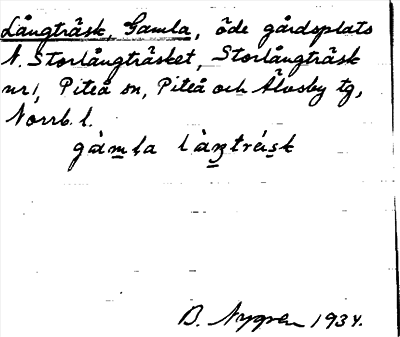 Långträsk, Gamla, öde gårdsplats
N. Storlångträsket, Storlångträsk
nr 1, Piteå sn, Piteå och Älvsby tg,
Norrb. l.
gàmla làŋtrásk
B. Nygren 1934.